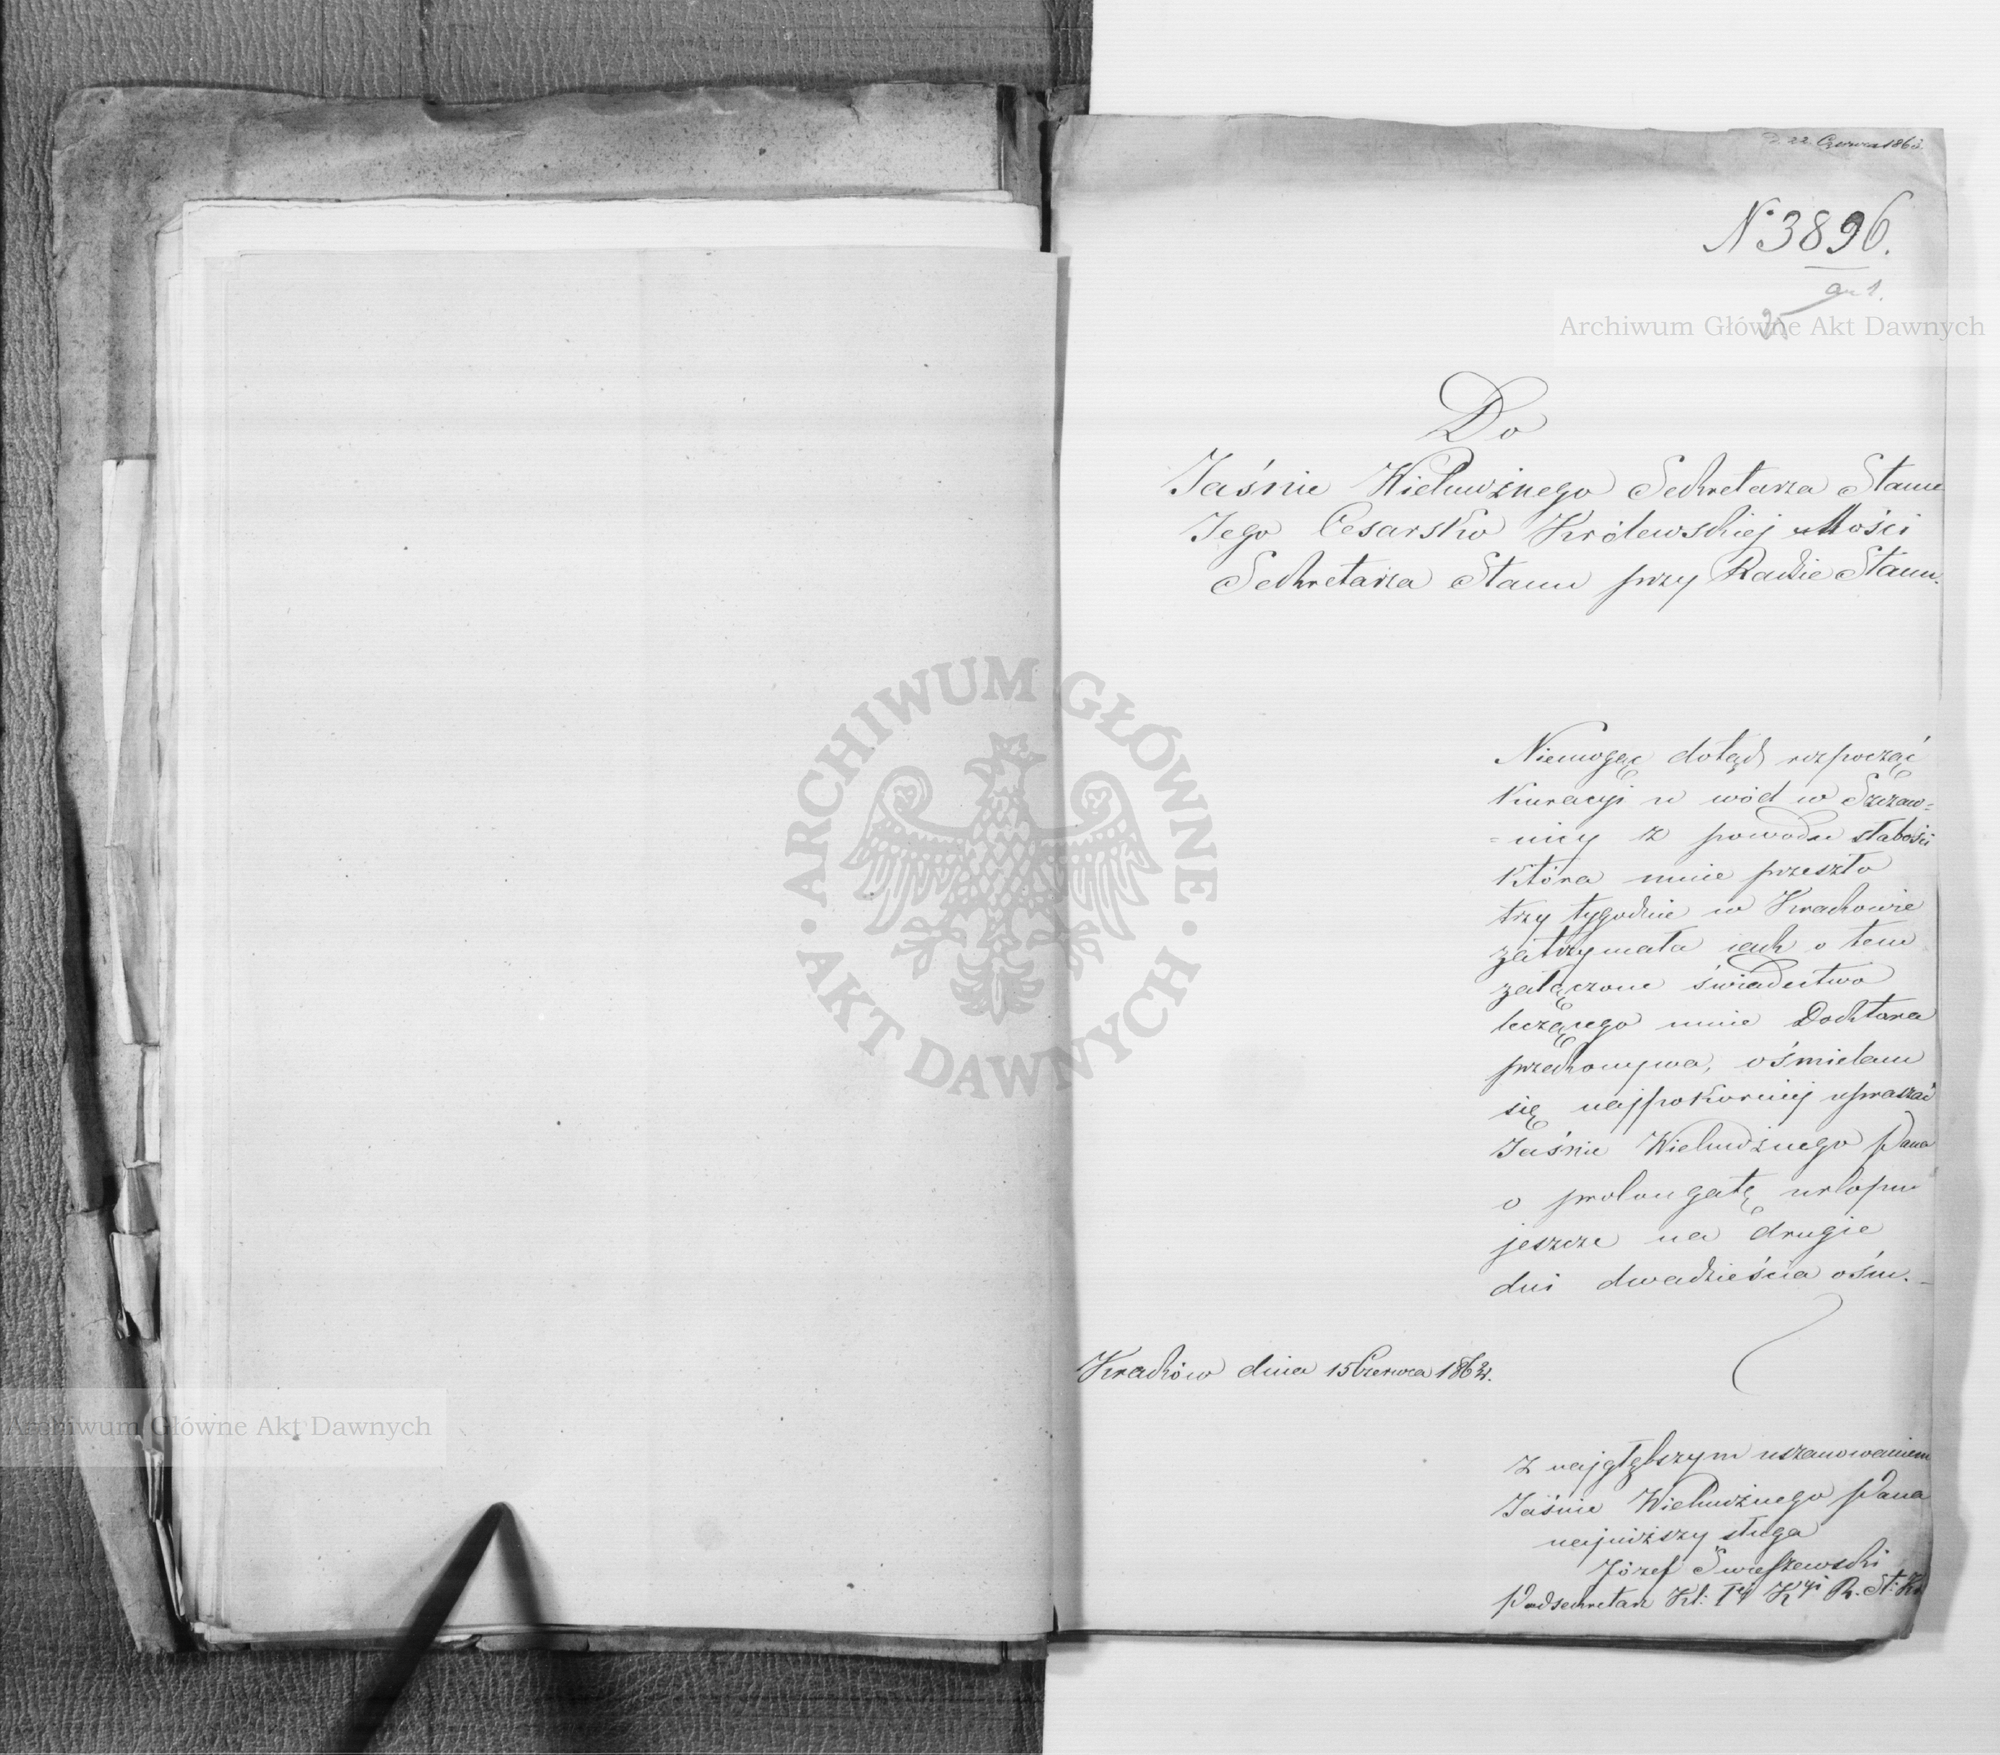 D. 22 Czerwca 1863.
N° 3896.
Archiwum Główne Akt Dawnych
Do
Jaśnie Wielmożnego Sekretarza Stanu
Jego Cesarsko Królewskiej Mości
Sekretarza Stanu przy Radzie Stanu.
Niemogąc dotąd rozpocząć
Kuracyi u wód w Szczaw=
=nicy z powodu słabości
która mnie przeszło
trzy tygodnie w Krakowie
zatrzymała iak o tem
załączone świadectwo
leczącego mnie Doktora
przekonywa, ośmielam
się najpokorniej upraszać
Jaśnie Wielmożnego Pana
o prolongatę urlopu
jeszcze na drugie
dni dwadzieścia ośm.
Kraków dnia 15 Czerwca 1863.
Z najgłębszym uszanowaniem
Jaśnie Wielmożnego Pana
najniższy sługa
Józef Świeszewski
Podsekretarz Kl: K R. St:
ARCHIWUM GŁÓWNE
AKT DAWNYCH
Archiwum Główne Akt Dawnych